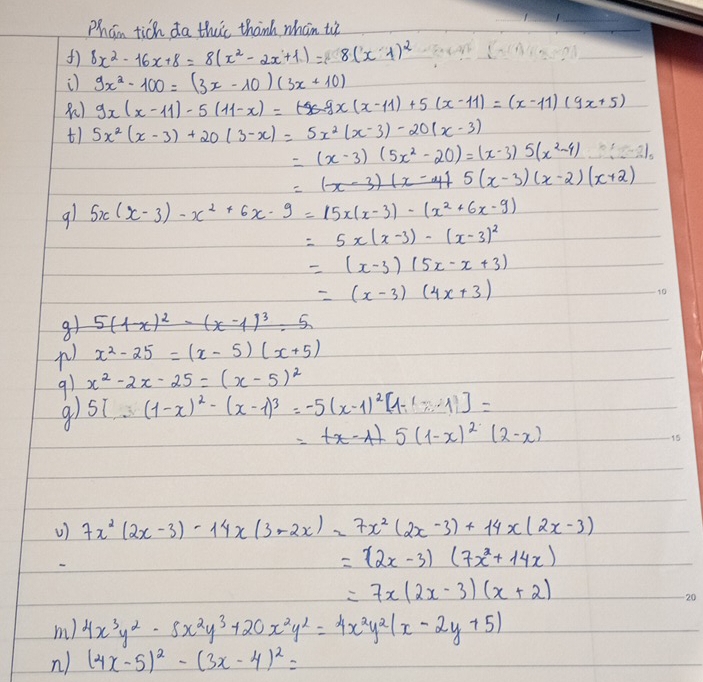 Phân tích đa thức thành nhân tử
f) 8x² - 16x + 8 = 8(x² - 2x + 1) = 8(x 1)²
i) 9x² - 100 = (3x - 10)(3x + 10)
h) 9x(x - 11) - 5(11 - x) = 9x(x - 11) + 5(x - 11) = (x - 11)(9x + 5)
t) 5x²(x - 3) + 20(3 - x) = 5x²(x - 3) - 20(x - 3)
= (x - 3)(5x² - 20) = (x - 3) 5(x² - 4)
= (x - 3)(x - 4) 5(x - 3)(x - 2)(x + 2)
q) 5x(x - 3) - x² + 6x - 9 = 5x(x - 3) - (x² + 6x - 9)
= 5x(x - 3) - (x - 3)²
= (x - 3)(5x - x + 3)
= (x - 3)(4x + 3)
g) 5(1 - x)² - (x - 1)³ = 5
p) x² - 25 = (x - 5)(x + 5)
q) x² - 2x - 25 = (x - 5)²
g) 5[ (1 - x)² - (x - 1)³ = -5(x - 1)²[1 - (x - 1)] =
= (x - 1) 5(1 - x)² (2 - x)
v) 7x²(2x - 3) - 14x(3 - 2x) = 7x²(2x - 3) + 14x(2x - 3)
= (2x - 3)(7x² + 14x)
= 7x(2x - 3)(x + 2)
m) 4x³y² - 8x²y³ + 20x²y² = 4x²y²(x - 2y + 5)
n) (4x - 5)² - (3x - 4)² =
10
15
20